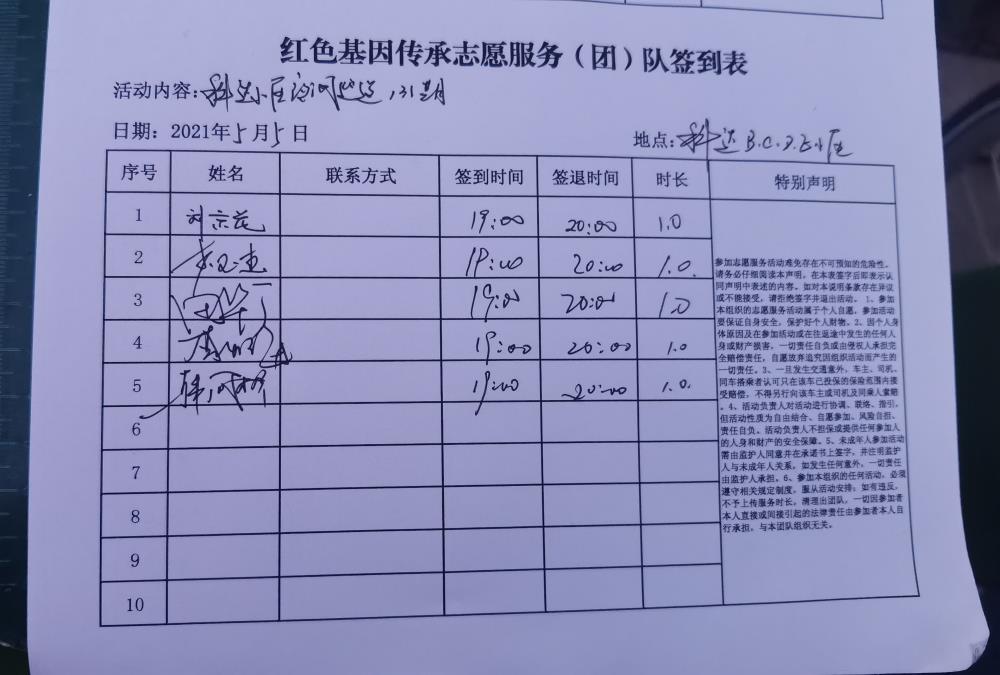 红色基因传承志愿服务（团）队签到表
活动内容：
日期：2021年5月5日
地点：科达B.C.
序号 姓名 联系方式 签到时间 签退时间 时长 特别声明
1 19:00 20:00 1.0
2 19:00 20:00 1.0
3 19:00 20:00 1.0
4 19:00 20:00 1.0
5 19:00 20:00 1.0
6
7
8
9
10
参加志愿服务活动难免存在不可预知的危险性。
请务必仔细阅读本声明，在本表签字后即表示认
同声明中表述的内容。如对本说明条款存在异议
或不能接受，请拒绝签字并退出活动。1、参加
本组织的志愿服务活动属于个人自愿，参加活动
要保证自身安全，保护好个人财物。2、因个人身
体原因及在参加活动或在往返途中发生的任何人
身或财产损害，一切责任自负或由侵权人承担完
全赔偿责任，自愿放弃追究因组织活动而产生的
一切责任。3、一旦发生交通意外，车主、司机、
同车搭乘者认可只在该车已投保的保险范围内接
受赔偿，不得另行向该车主或司机及同乘人索赔
。4、活动负责人对活动进行协调、联络、指引，
但活动性质为自由结合、自愿参加、风险自担、
责任自负。活动负责人不担保或提供任何参加人
的人身和财产的安全保障。5、未成年人参加活动
需由监护人同意并在承诺书上签字，并注明监护
人与未成年人关系，如发生任何意外，一切责任
由监护人承担。6、参加本组织的任何活动，必须
遵守相关规定制度，服从活动安排；如有违反，
不予上传服务时长，清理出团队，一切因参加者
本人直接或间接引起的法律责任由参加者本人自
行承担，与本团队组织无关。